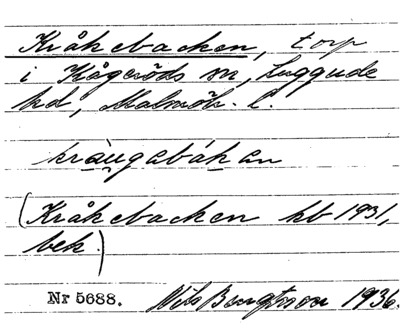 Kråkebacken, torp
i Kågeröds sn, Luggude
hd, Malmöh. l.
kràugabákan
(Kråkebacken kb 1931,
bek.)
Nr 5688. Nils Bengtsson 1936.